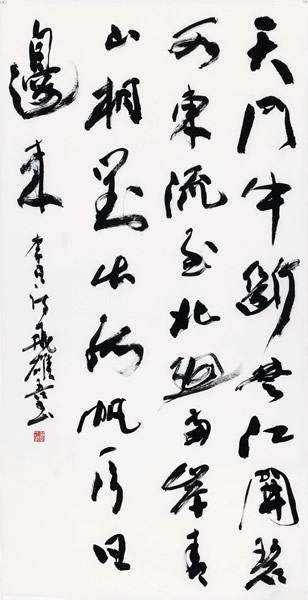 天門中斷楚江開碧
水東流至此迴兩岸青
山相對出孤帆一片日
邊來
李白詩